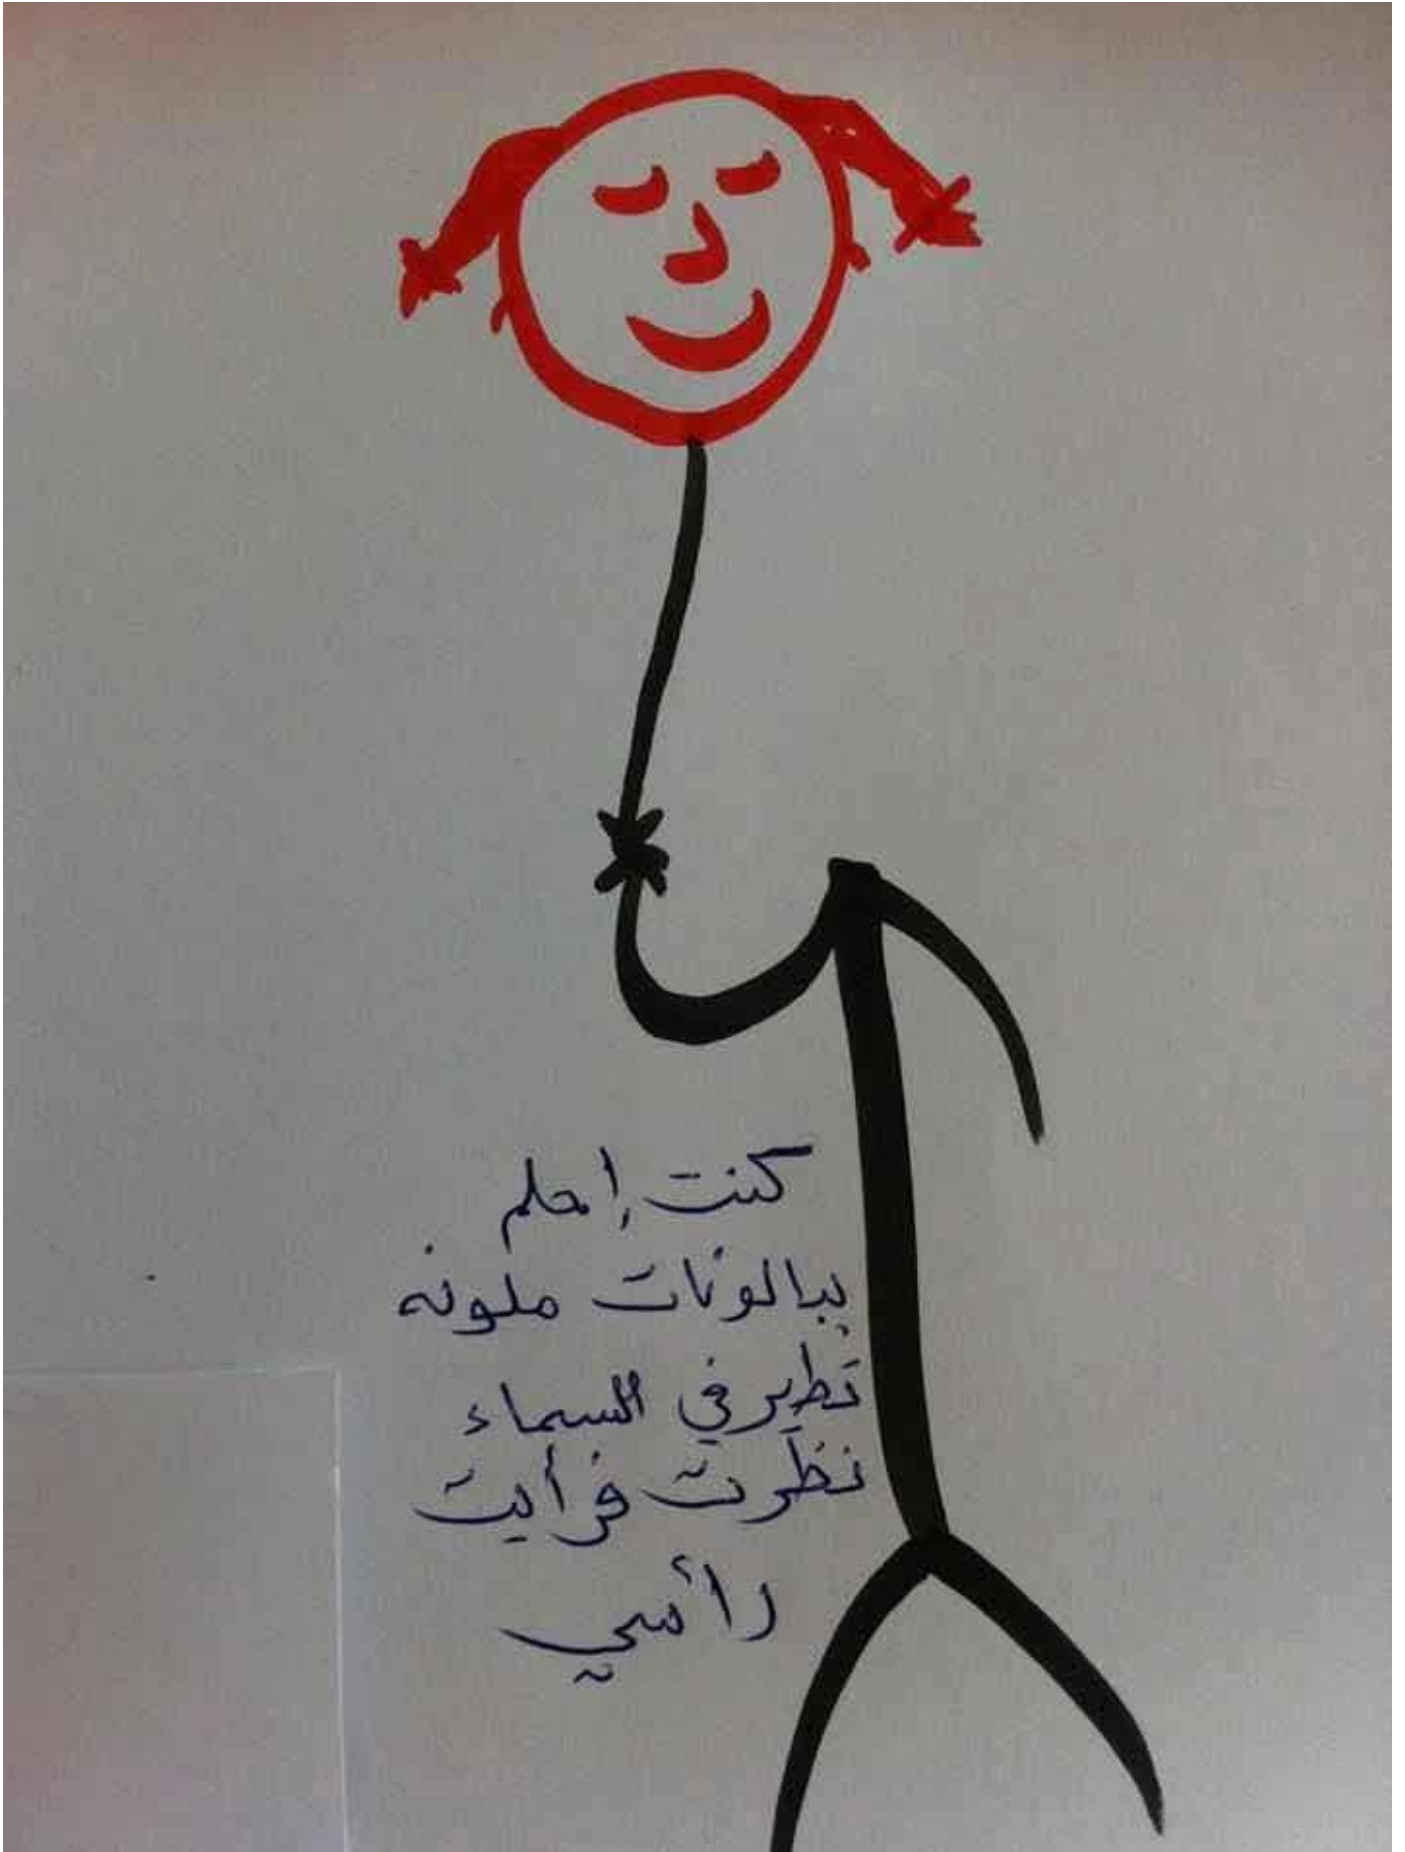 كنت إحلم
ببالونات ملونه
تطير في السماء
نظرت فرأيت
رأسي